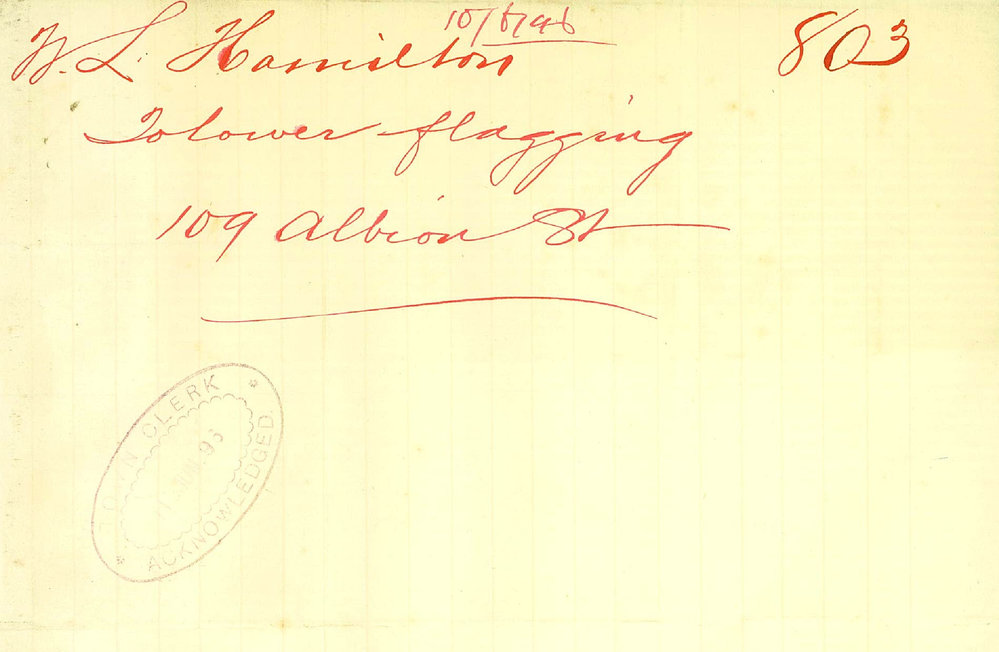 10/6/96
W. L. Hamilton 803
To lower flagging
109 Albion St
TOWN CLERK
JUN. 96
ACKNOWLEDGED.